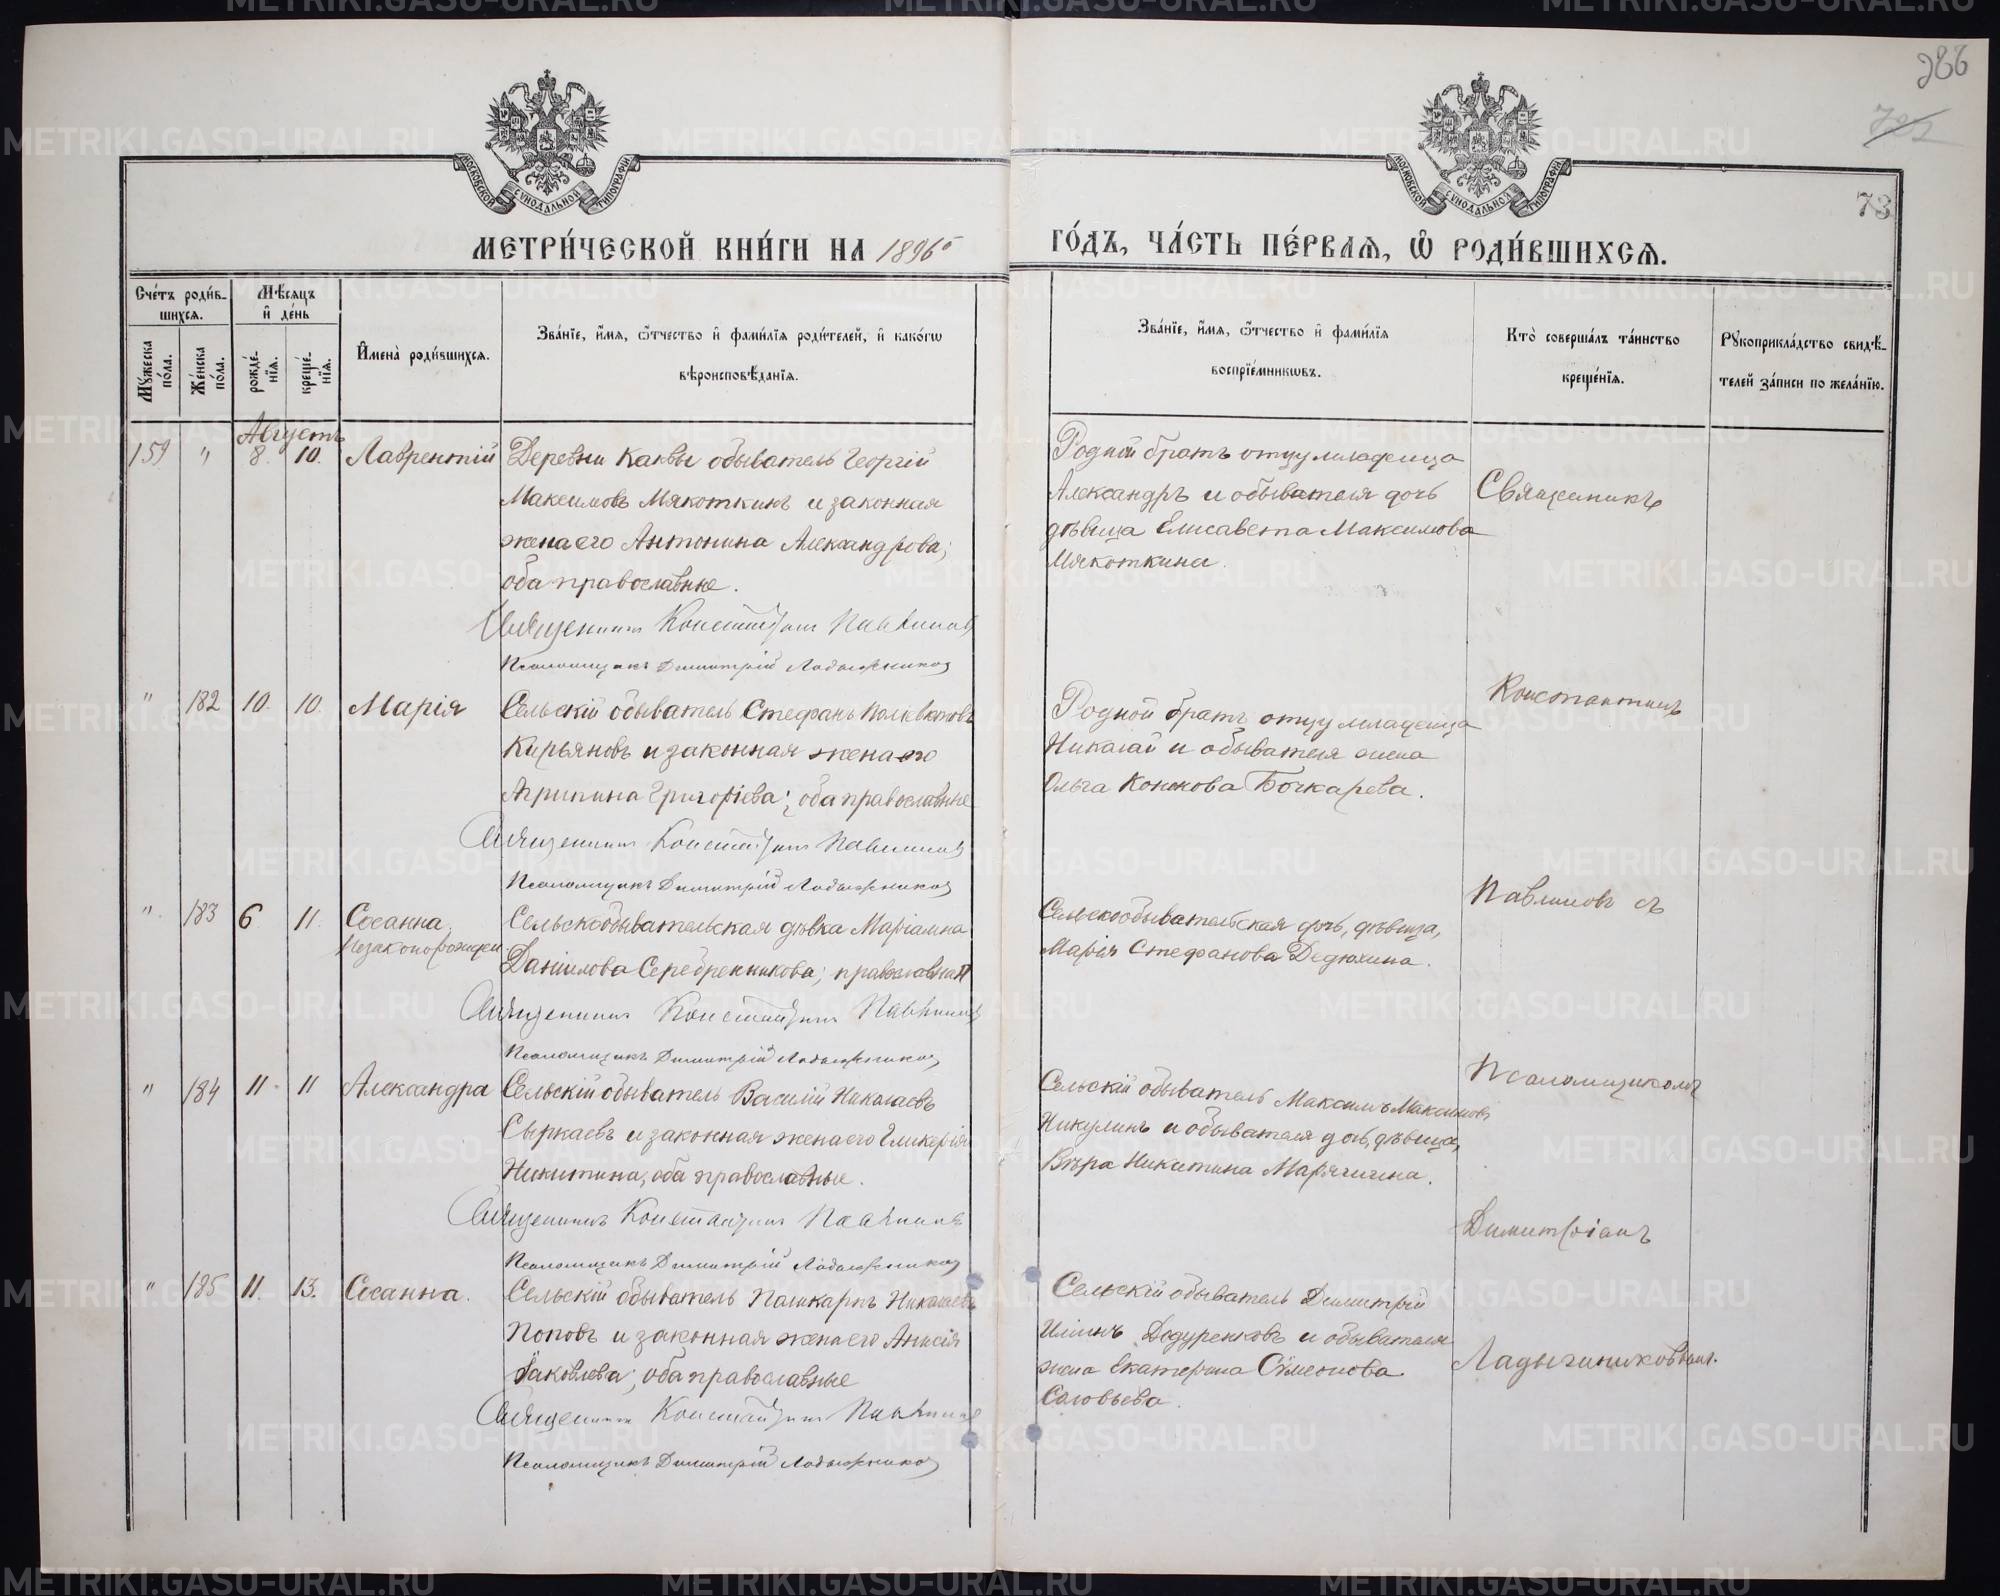 288
73
МОСКОВСКОЙ СУНОДАЛЬНОЙ ТИПОГРАФІИ
МОСКОВСКОЙ СУНОДАЛЬНОЙ ТИПОГРАФІИ
МЕТРИ́ЧЕСКОЙ КНИ́ГИ НА 1896 й
ГО́ДЪ, ЧА́СТЬ ПЕ́РВАѦ, Ѽ РОДИ́ВШИХСѦ.
Сче́тъ роди́вшихсѧ.
Мꙋ́жеска по́ла.
Же́нска по́ла.
Мѣ́сѧцъ и҆ де́нь
рожде́нїѧ.
креще́нїѧ.
И҆мена̀ роди́вшихсѧ.
Зва́нїе, и҆́мѧ, ѻ҆́тчество и҆ фами́лїѧ роди́телей, и҆ како́гѡ
вѣроисповѣ́данїѧ.
Зва́нїе, и҆́мѧ, ѻ҆́тчество и҆ фами́лїѧ
воспрїе́мникѡвъ.
Кто̀ соверша́лъ та́инство
креще́нїѧ.
Рꙋкоприкла́дство свидѣ́-
телей за́писи по жела́нїю.
Августъ
159 " 8. 10. Лаврентій
Деревни Каквы обыватель Георгій
Максимовъ Мякоткинъ и законная
жена его Антонина Александрова;
оба православные.
Священникъ Константинъ Павлиновъ
Псаломщикъ Димитрій Ладыжниковъ
Родной братъ отцу младенца
Александръ и обывателя дочь
дѣвица Елисавета Максимова
Мякоткина.
" 182 10. 10. Марія
Сельскій обыватель Стефанъ Поліевктовъ
Кирьяновъ и законная жена его
Агрипина Григоріева; оба православные
Священникъ Константинъ Павлиновъ
Псаломщикъ Димитрій Ладыжниковъ
Родной братъ отцу младенца
Николай и обывателя жена
Ольга Конокова Бочкарева.
" 183 6 11. Сосанна
Незаконорожден.
Сельскобывательская дѣвка Маріамна
Даніилова Серебренникова; православная
Священникъ Константинъ Павлиновъ
Псаломщикъ Димитрій Ладыжниковъ
Сельскообывательская дочь, дѣвица,
Марія Стефанова Дедюхина.
" 184 11 11 Александра
Сельскій обыватель Василій Николаевъ
Сыркаевъ и законная жена его Гликерія
Никитина, оба православные.
Священникъ Константинъ Павлиновъ
Псаломщикъ Димитрій Ладыжниковъ
Сельскій обыватель Максимъ Максимовъ
Никулинъ и обывателя дочь, дѣвица,
Вѣра Никитина
" 185 11. 13. Сосанна.
Сельскій обыватель Поликарпъ Николаевъ
Поповъ и законная жена его Анисія
Яковлева; оба православные
Священникъ Константинъ Павлиновъ
Псаломщикъ Димитрій Ладыжниковъ
Сельскій обыватель Димитрій
Ильинъ и обывателя
жена Екатерина Сѵмеонова
Соловьева.
Священникъ
Константинъ
Павлиновъ съ
Псаломщикомъ
Димитріемъ
Ладыжниковымъ.
METRIKI.GASO-URAL.RU